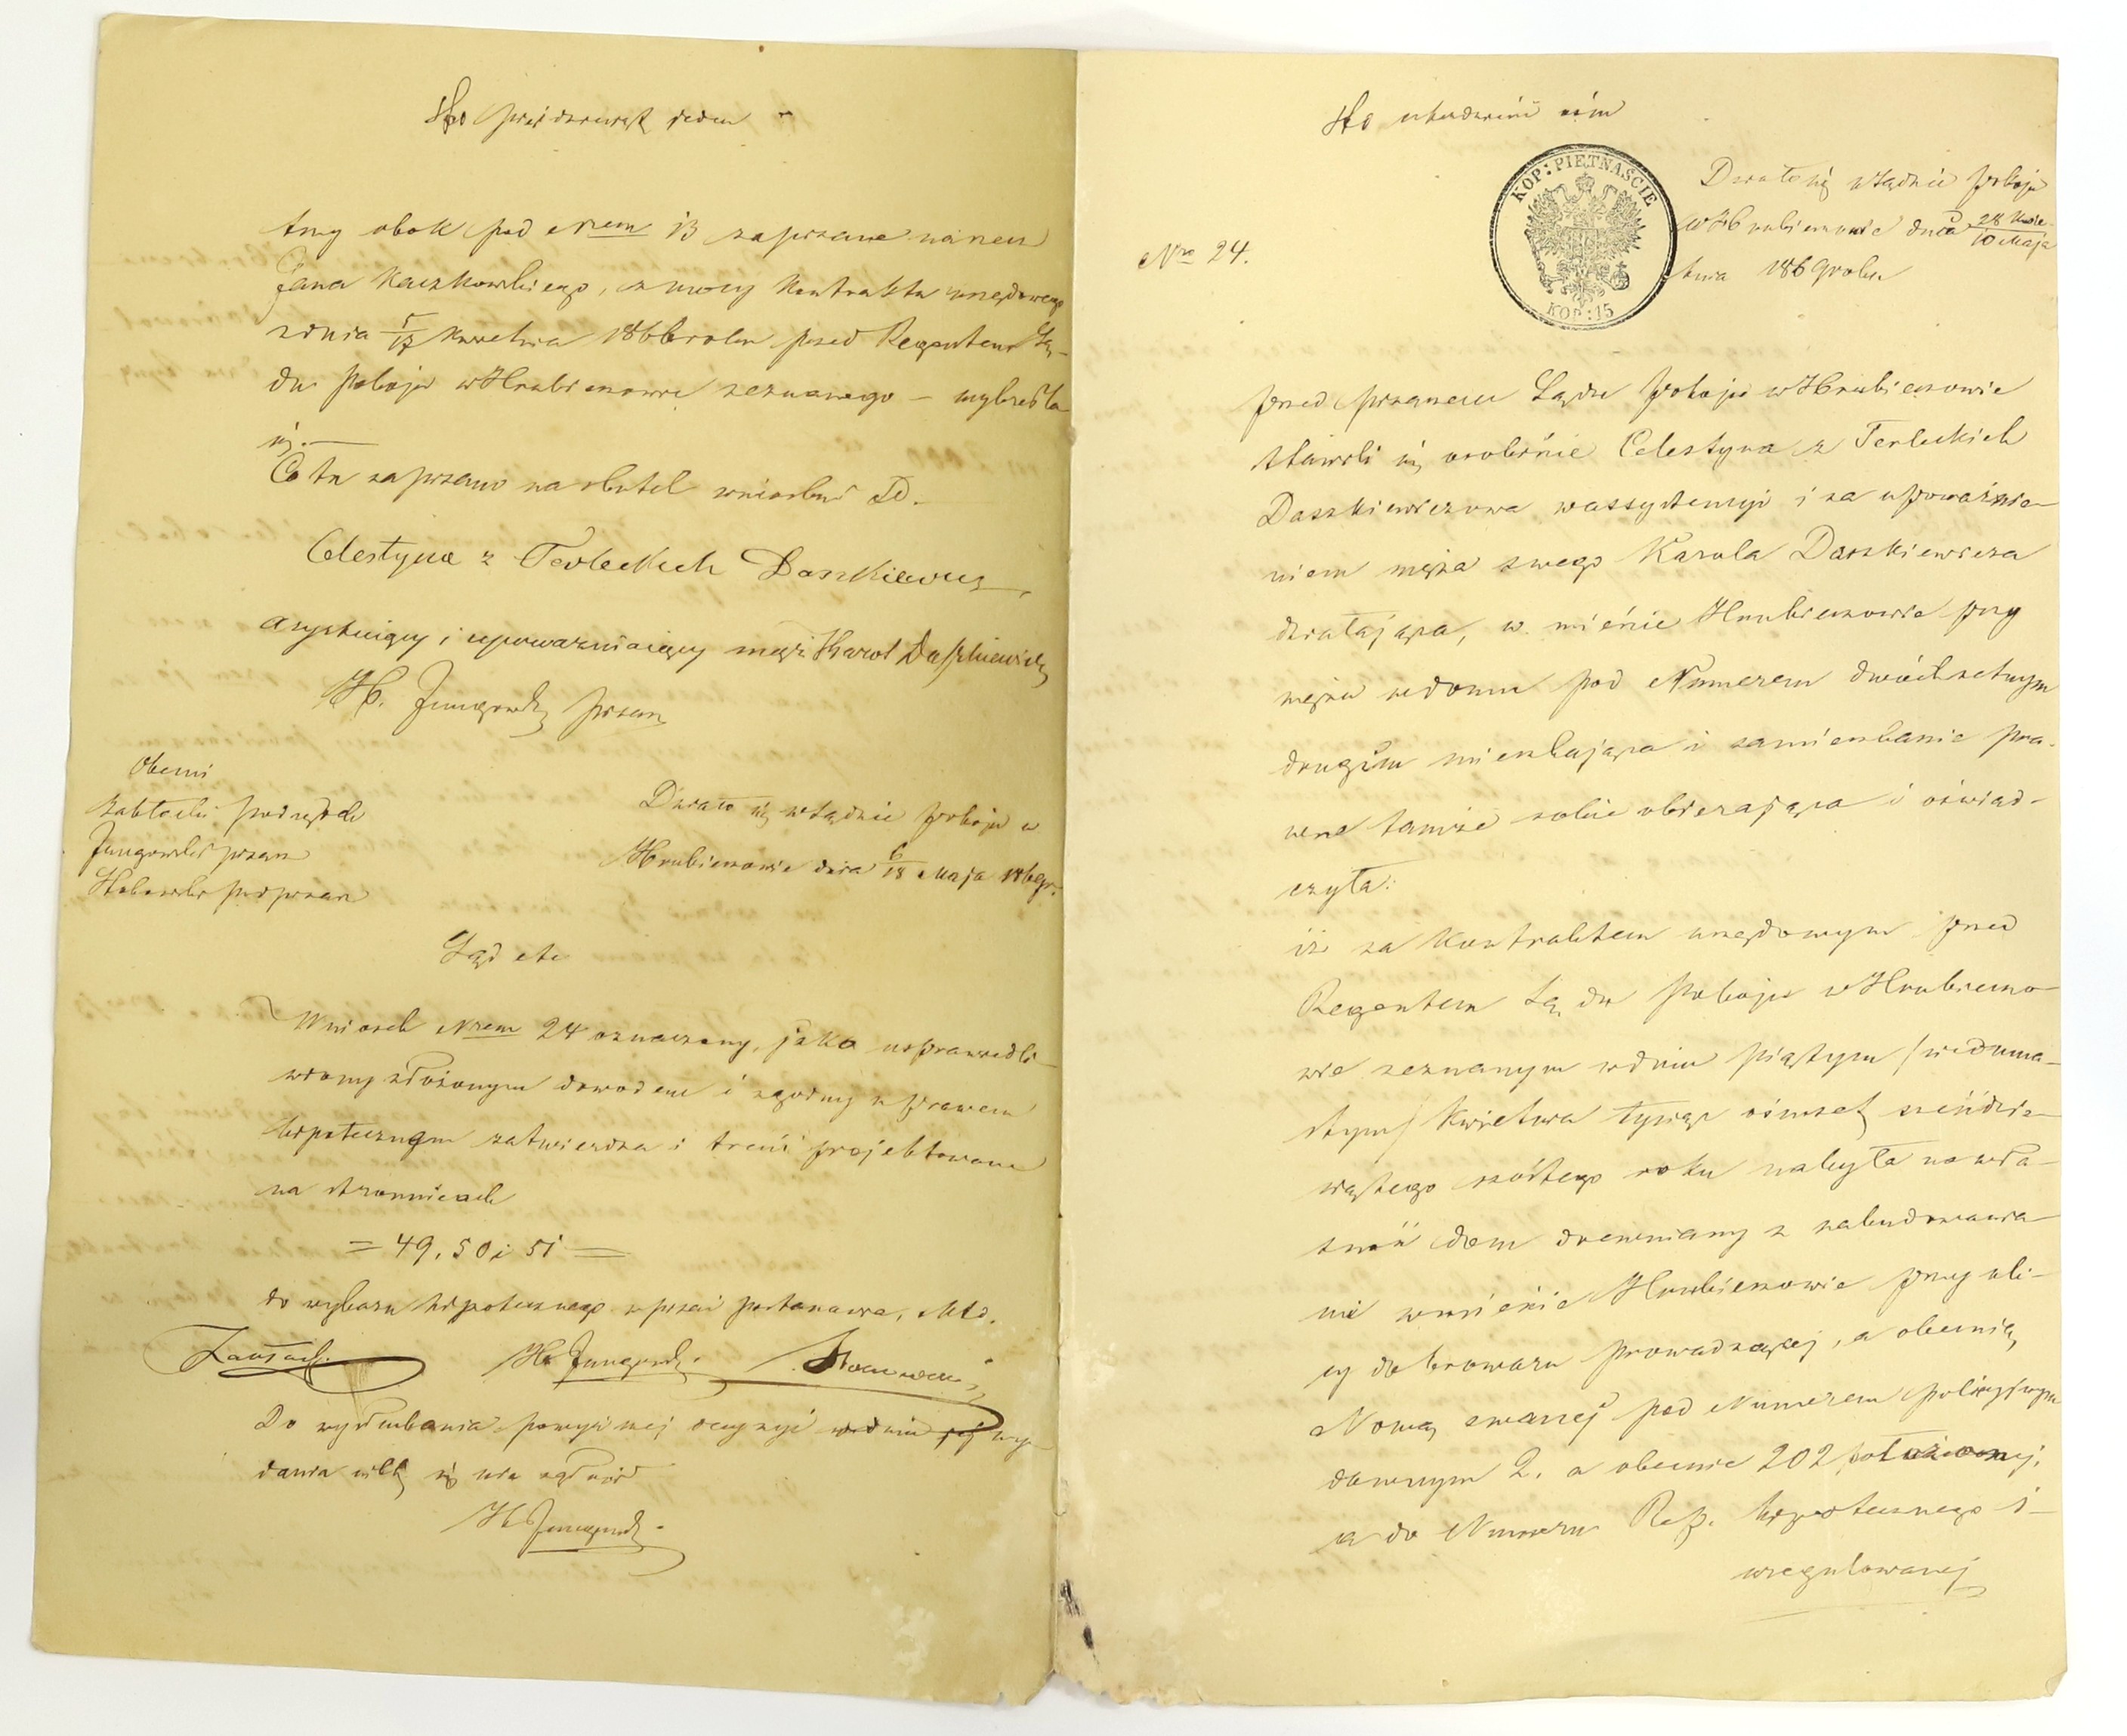 Sto pięćdziesiąt jeden
tny obok pod Nrem 13 zapisane na rzecz
Jana Kaczkowskiego, z mocy Kontraktu urzędowego
z dnia 5/17 Kwietnia 1866 roku przed Regentem Są-
du Pokoju w Hrubieszowie zeznanego – wykreśla
się. —
Co tu zapisano na skutek wniosku D.
Celestyna z Terleckich Daszkiewicz
Asystuiący i upoważniaiący mąż Karol Daszkiewicz
H. Jungowski pisarz
Obecni
podsędek
Jungowski pisarz
podpisarz
Działo się w Sądzie Pokoju w
Hrubieszowie dnia 6/18 Maja 1869 r.
Sąd etc
Wniosek Nrem 24 oznaczony, jako usprawiedli-
wiony złożonym dowodem i zgodny z prawem
hipotecznym zatwierdza i treść projektowane
na stronnicach
= 49, 50 i 51 =
do wykazu hipotecznego wpisać postanawia,
H. Jungowski
Do wysłuchania powyższej decyzyi w dniu jej wy-
dania nikt się nie zgłosił
H. Jungowski
Sto czterdzieści ośm
Działo się w Sądzie Pokoju
w Hrubieszowie dnia 28 Kwie-/10 Maja
tnia 1869 roku
Nro 24.
KOP: PIETNAŚCIE
KOP: 15
Przed Pisarzem Sądu Pokoju w Hrubieszowie
stawili się osobiście Celestyna z Terleckich
Daszkiewiczowa w assystencyi i za upoważnie-
niem męża swego Karola Daszkiewicza
działająca, w mieście Hrubieszowie przy
mężu w domu pod Numerem dwóchsetnym
drugim mieszkająca i zamieszkanie pra-
wne tamże sobie obierająca i oświad-
czyła:
iż za Kontraktem urzędowym przed
Regentem Sądu Pokoju w Hrubieszo-
wie zeznanym w dniu piątym / siedmna-
stym / Kwietnia tysiąc ośmset sześćdzie-
siątego szóstego roku nabyła na wła-
sność dom drewniany z zabudowania-
mi w mieście Hrubieszowie przy uli-
cy do browaru prowadzącej, a obecnie
Nową zwanej pod Numerem policyjnym
dawnym 2. a obecnie 202 położonej,
a do Numeru Rep. hipotecznego 1 –
uregulowanej